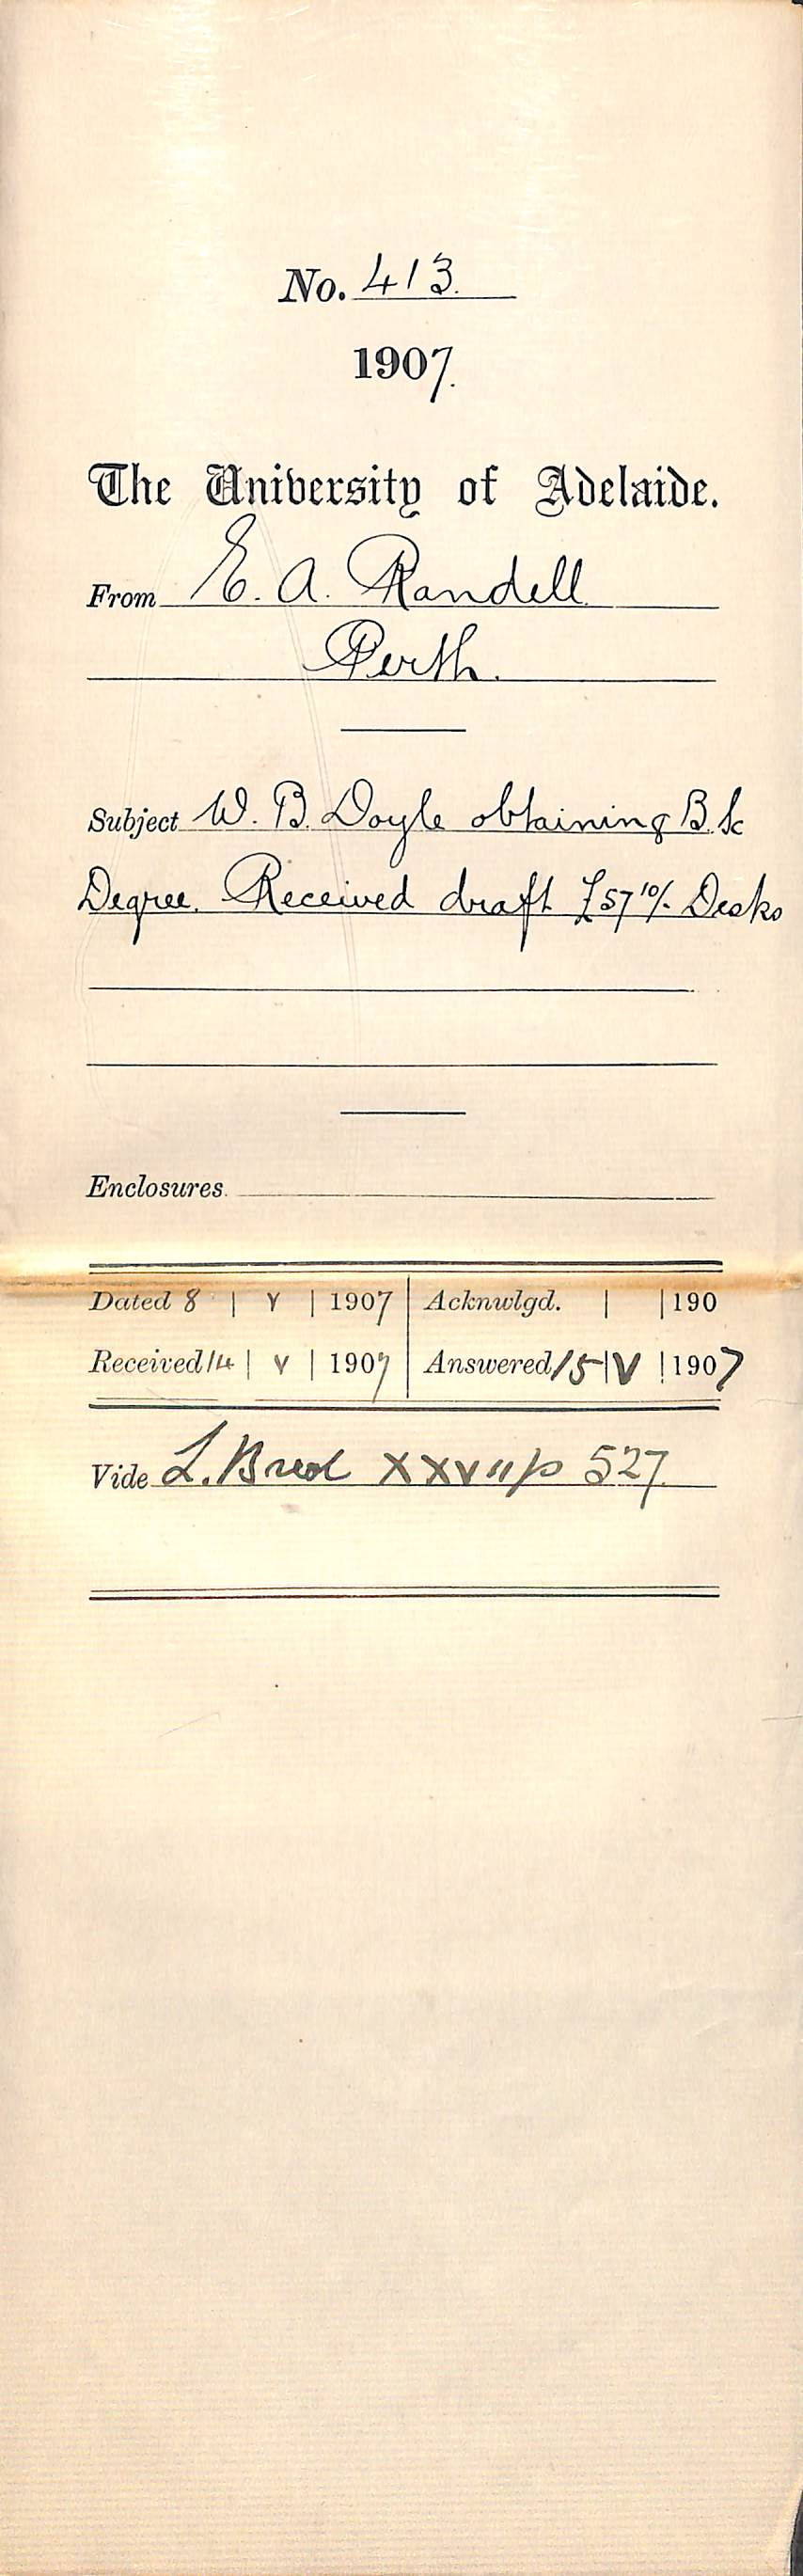 No. 413.
1907.
The University of Adelaide.
From E. A. Randell
Perth.
Subject W. B. Doyle obtaining B.Sc
Degree. Received draft £57 10/- Desks
Enclosures.
Dated 8 | V | 1907 | Acknwlgd. | | 190
Received 14 | V | 1907 | Answered 15 | V | 1907
Vide L. Book XXVII p 527.